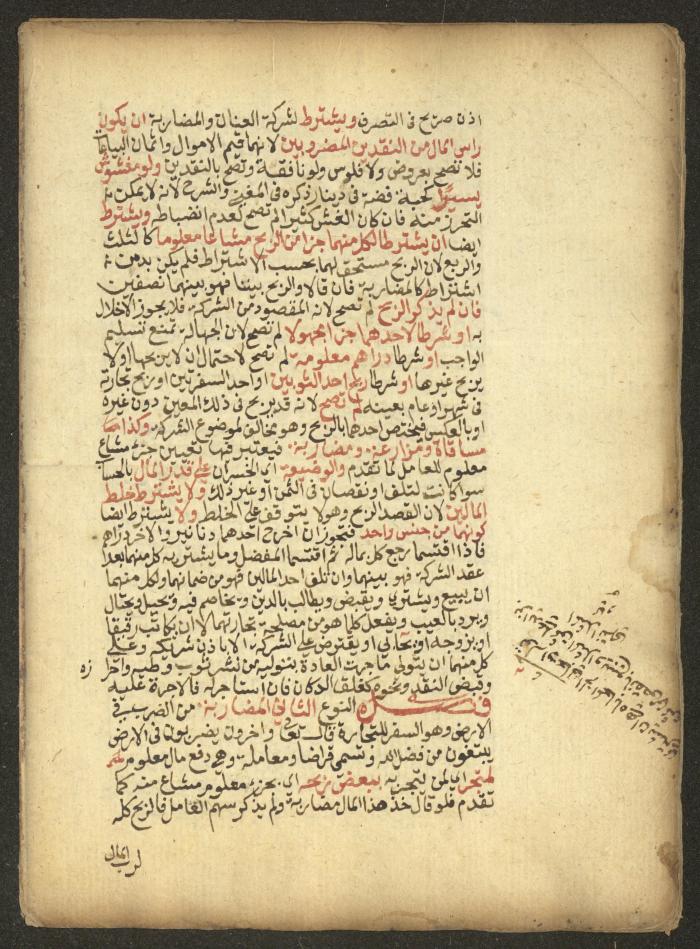 اذن صريح في التصرف ويشترط لشركة العنان والمضاربة ان يكون
راس المال من النقدين المضروبين لانهما قيم الاموال واثمان البياعات
فلا تصح بعروض ولا فلوس ولو نافقة وتصح بالنقدين ولو مغشوشين
يسيرا كحبة فضة في دينار ذكره في المغني والشرح لانه لا يمكن
التحرز منه فان كان الغش كثيرا لم تصح لعدم انضباطه ويشترط
ايضا ان يشترطا لكل منهما جزا من الربح مشاعا معلوما كالثلث
والربع لان الربح مستحق لهما بحسب الاشتراط فلم يكن بد من
اشتراطه كالمضاربة فان قالا والربح بيننا فهو بينهما نصفين
فان لم يذكر الربح لم تصح لانه المقصود من الشركة فلا يجوز الاخلال
به او شرطا لاحدهما جزا مجهولا لم تصح لان الجهالة تمنع تسليم
الواجب او شرطا دراهم معلومة لم تصح لاحتمال ان لا يربحها او لا
يربح غيرها او شرطا ربح احد الثوبين او احد السفرتين او ربح تجارته
في شهر او عام بعينه لم تصح لانه قد يربح في ذلك المعين دون غيره
او بالعكس فيختص احدهما بالربح وهو مخالف لموضوع الشركة وكذا
مساقاة ومزارعة ومضاربة فيعتبر فيها تعيين جزء مشاع
معلوم للعامل لما تقدم والوضيعة اي الخسران على قدر المال بالحساب
سوا كانت لتلف او نقصان في الثمن او غير ذلك ولا يشترط خلط
المالين لان القصد الربح وهو لا يتوقف على الخلط ولا يشترط ايضا
كونهما من جنس واحد فتجوز ان اخرج احدهما دنانير والاخر دراهم
فاذا اقتسما رجع كل بماله ثم اقتسما الفضل وما يشتريه كل منهما بعد
عقد الشركة فهو بينهما وان تلف احد المالين فهو من ضمانهما ولكل منهما
ان يبيع ويشتري ويقبض ويطالب بالدين ويخاصم فيه ويحيل ويحتال
ويرد بالعيب ويفعل كلما هو من مصلحة تجارتهما لا ان يكاتب رقيقا
او يزوجه او يحابي او يقترض على الشركة الا باذن شريكه وعلى
كل منهما ان يتولى ما جرت العادة بتوليه من نشر ثوب وطيه واحراز
وقبض النقد ونحوه كغلق الدكان فان استاجر له فالاجرة عليه
فصل النوع الثاني المضاربة من الضرب في
الارض وهو السفر للتجارة قال تعالى واخرون يضربون في الارض
يبتغون من فضل الله وتسمى قراضا ومعاملة وهي دفع مال معلوم
لمتجر اي لمن يتجر به ببعض ربحه اي بجزء معلوم مشاع منه كما
تقدم فلو قال خذ هذا المال مضاربة ولم يذكر سهم العامل فالربح كله
لرب المال